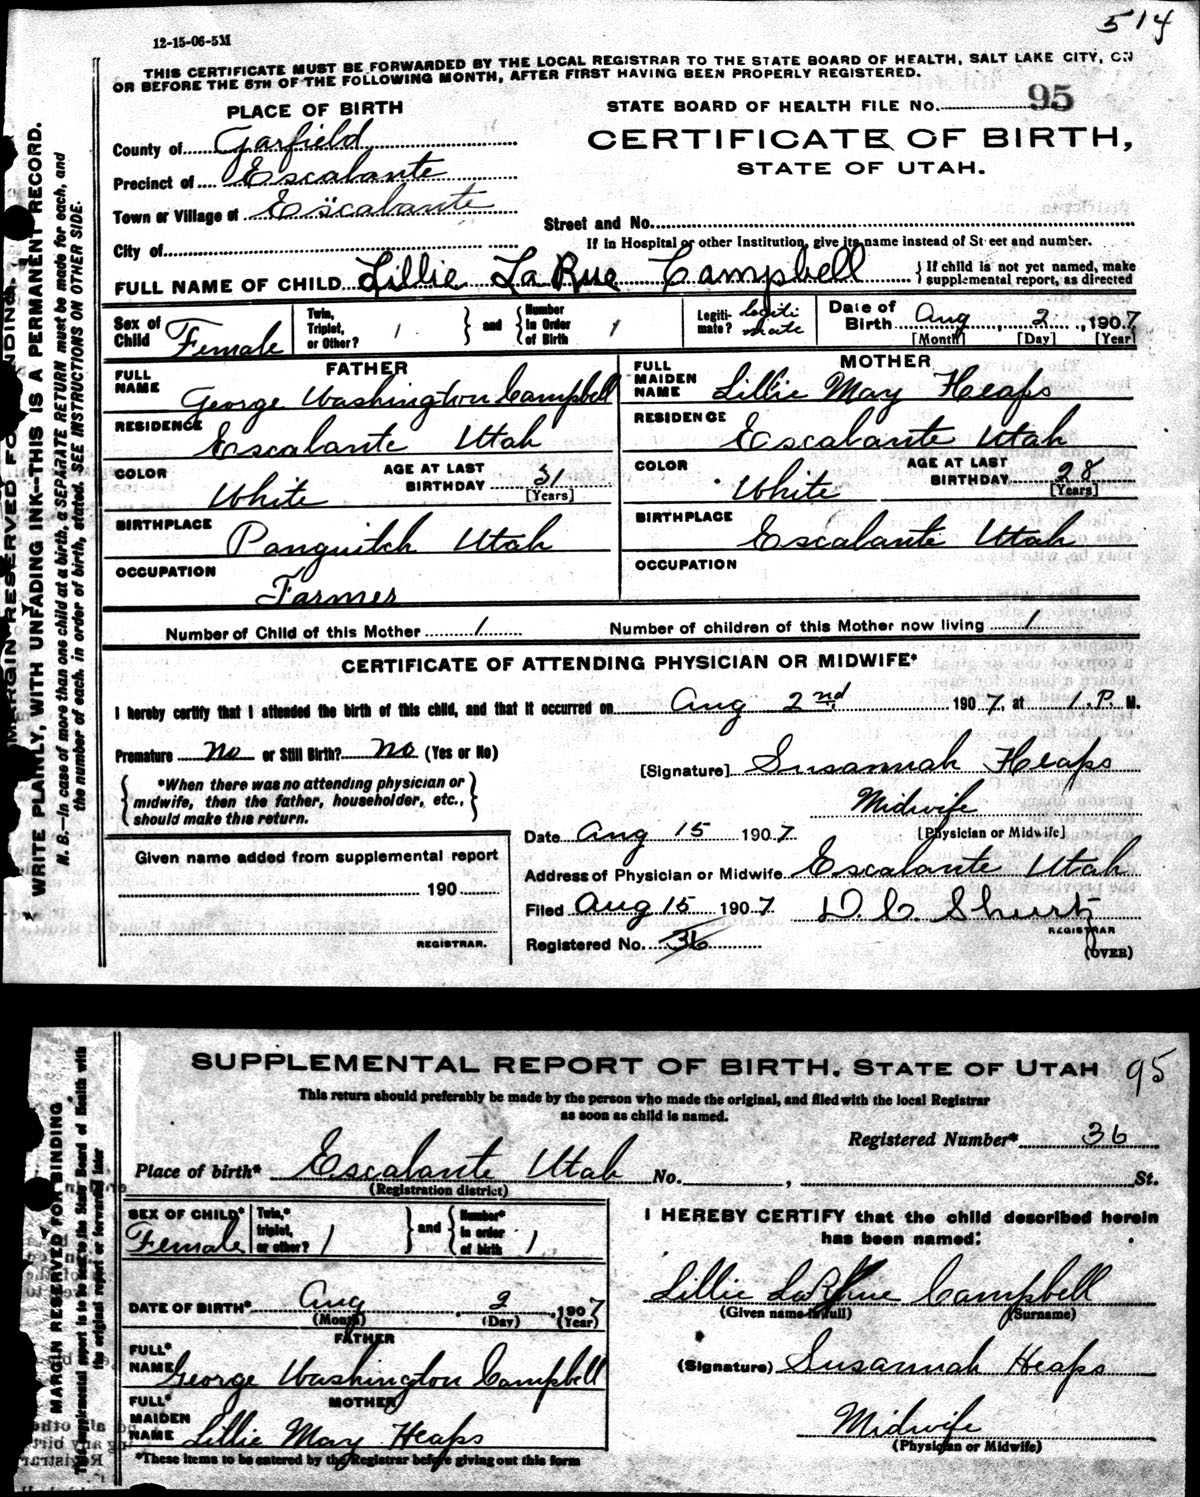 514
12-15-06-5M
THIS CERTIFICATE MUST BE FORWARDED BY THE LOCAL REGISTRAR TO THE STATE BOARD OF HEALTH, SALT LAKE CITY, ON
OR BEFORE THE 5TH OF THE FOLLOWING MONTH, AFTER FIRST HAVING BEEN PROPERLY REGISTERED.
MARGIN RESERVED FOR BINDING.
WRITE PLAINLY, WITH UNFADING INK—THIS IS A PERMANENT RECORD.
N. B.—In case of more than one child at a birth, a SEPARATE RETURN must be made for each, and
the number of each, in order of birth, stated. SEE INSTRUCTIONS ON OTHER SIDE.
PLACE OF BIRTH
STATE BOARD OF HEALTH FILE No. 95
County of Garfield
CERTIFICATE OF BIRTH,
Precinct of Escalante
STATE OF UTAH.
Town or Village of Escalante
Street and No.
City of
If in Hospital or other Institution, give its name instead of Street and number.
FULL NAME OF CHILD Lillie LaRue Campbell
If child is not yet named, make
supplemental report, as directed
Sex of Child Female
Twin, Triplet, or Other? 1 and Number in Order of Birth 1
Legitimate? Legitimate
Date of Birth Aug 2, 1907
[Month] [Day] [Year]
FATHER
FULL NAME George Washington Campbell
RESIDENCE Escalante Utah
COLOR White AGE AT LAST BIRTHDAY 31 [Years]
BIRTHPLACE Panguitch Utah
OCCUPATION Farmer
MOTHER
FULL MAIDEN NAME Lillie May Heaps
RESIDENCE Escalante Utah
COLOR White AGE AT LAST BIRTHDAY 28 [Years]
BIRTHPLACE Escalante Utah
OCCUPATION
Number of Child of this Mother 1 Number of children of this Mother now living 1
CERTIFICATE OF ATTENDING PHYSICIAN OR MIDWIFE*
I hereby certify that I attended the birth of this child, and that it occurred on Aug 2nd 1907, at 1. P. M.
Premature no or Still Birth? no (Yes or No)
*When there was no attending physician or
midwife, then the father, householder, etc.,
should make this return.
[Signature] Susannah Heaps
Midwife
[Physician or Midwife]
Date Aug 15 1907
Address of Physician or Midwife Escalante Utah
Filed Aug 15 1907 D. C. Shurtz
REGISTRAR
Registered No. 36
(OVER)
Given name added from supplemental report
190
REGISTRAR.
SUPPLEMENTAL REPORT OF BIRTH, STATE OF UTAH 95
This return should preferably be made by the person who made the original, and filed with the local Registrar
as soon as child is named.
MARGIN RESERVED FOR BINDING
This supplemental report is to be sent to the State Board of Health with
the original report or forwarded later
Registered Number* 36
Place of birth* Escalante Utah No. , St.
(Registration district)
SEX OF CHILD* Female
Twin,* triplet, or other? 1 and Number* in order of birth 1
DATE OF BIRTH* Aug 2, 1907
(Month) (Day) (Year)
FATHER
FULL* NAME George Washington Campbell
MOTHER
FULL* MAIDEN NAME Lillie May Heaps
*These items to be entered by the Registrar before giving out this form
I HEREBY CERTIFY that the child described herein
has been named:
Lillie LaRue Campbell
(Given name in full) (Surname)
(Signature) Susannah Heaps
Midwife
(Physician or Midwife)